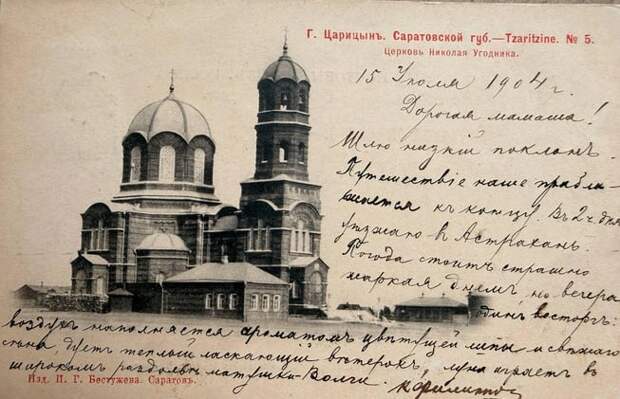 Г. Царицынъ. Саратовской губ.—Tzaritzine. № 5.
Церковь Николая Угодника.
15 Іюля 1904 г.
Дорогая мамаша!
Шлю низкій поклонъ.
Путешествіе наше прибли-
жается къ концу. Въ 2 ч. дня
уѣзжаю в Астрахань.
Погода стоитъ страшно
жаркая днемъ, но вечера
одинъ восторгъ:
воздухъ наполняется ароматомъ цвѣтущей липы и свѣжаго
сѣна, дуетъ теплый ласкающій вѣтерокъ, луна играетъ в
широкомъ раздольѣ матушки-Волги.
Изд. П. Г. Бестужева. Саратовъ.